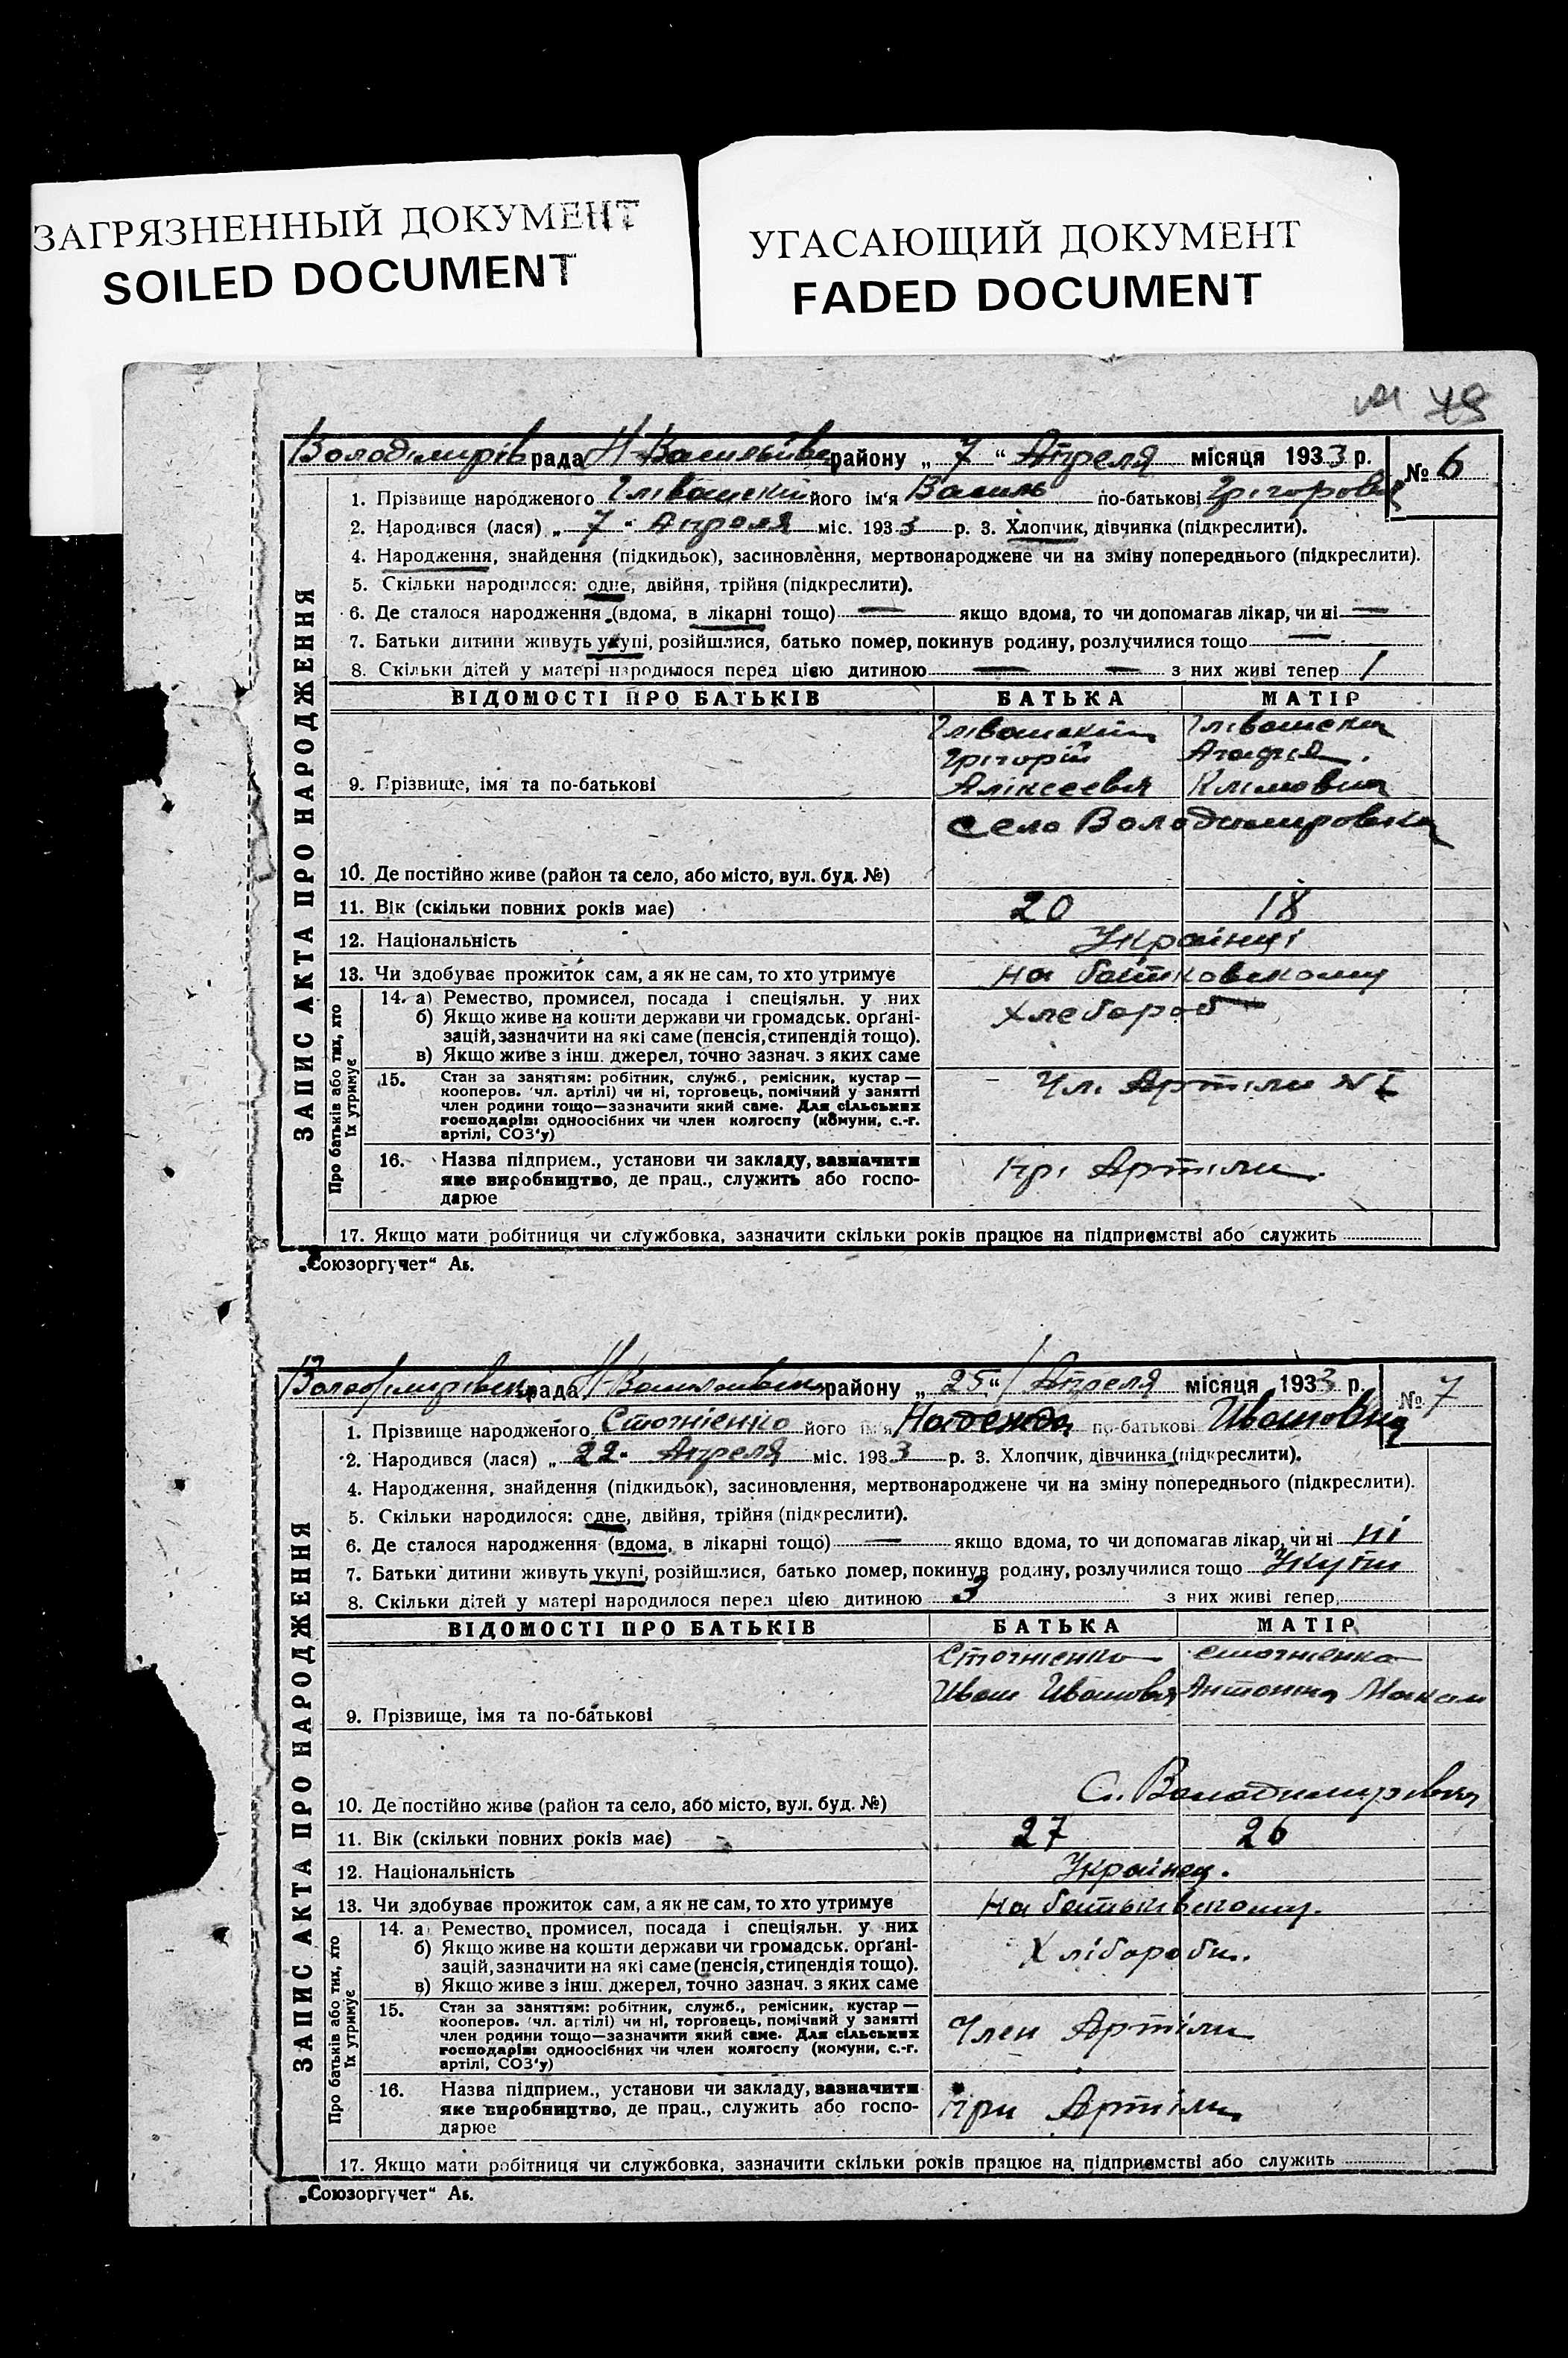 ЗАГРЯЗНЕННЫЙ ДОКУМЕНТ
SOILED DOCUMENT
УГАСАЮЩИЙ ДОКУМЕНТ
FADED DOCUMENT
79
Володімирів рада Н-Васильївс району „ 7 “ Апреля місяця 1933 р. № 6
1. Прізвище народженого його ім'я Василь по-батькові Грігоров
2. Народився (лася) „ 7 “ Апреля міс. 1933 р. 3. Хлопчик, дівчинка (підкреслити).
4. Народження, знайдення (підкидьок), засиновлення, мертвонароджене чи на зміну попереднього (підкреслити).
5. Скільки народилося: одне, двійня, трійня (підкреслити).
6. Де сталося народження (вдома, в лікарні тощо) — якщо вдома, то чи допомагав лікар, чи ні —
7. Батьки дитини живуть укупі, розійшлися, батько помер, покинув родину, розлучилися тощо —
8. Скільки дітей у матері народилося перед цією дитиною — — з них живі тепер 1
ВІДОМОСТІ ПРО БАТЬКІВ БАТЬКА МАТІР
Грігорій Агафія
9. Прізвище, імя та по-батькові Аліксеевич Клімовна
село Володимировка
10. Де постійно живе (район та село, або місто, вул. буд. №)
11. Вік (скільки повних років має) 20 18
12. Національність Украінці
13. Чи здобуває прожиток сам, а як не сам, то хто утримує на батковскому
14. а) Ремество, промисел, посада і спеціяльн. у них Хлебороб
б) Якщо живе на кошти держави чи громадськ. органі-
зацій, зазначити на які саме (пенсія, стипендія тощо).
в) Якщо живе з інш. джерел, точно зазнач. з яких саме
15. Стан за заняттям: робітник, служб., ремісник, кустар — Чл. Артіли № I
кооперов. (чл. артілі) чи ні, торговець, помічний у занятті
член родини тощо—зазначити який саме. Для сільських
господарів: одноосібних чи член колгоспу (комуни, с.-г.
артілі, СОЗ'у)
16. Назва підприєм., установи чи закладу, зазначити прі Артіли
яке виробництво, де прац., служить або госпо-
дарює
17. Якщо мати робітниця чи службовка, зазначити скільки років працює на підприємстві або служить
ЗАПИС АКТА ПРО НАРОДЖЕННЯ
Про батьків або тих, хто
їх утримує
„Союзоргучет“ Ак.
Володімирівськ рада Н-Васильівськ району „ 25 “ Апреля місяця 1933 р. № 7
1. Прізвище народженого Стогніенко його ім'я Надежда по-батькові Ивановна
2. Народився (лася) „ 22 “ Апреля міс. 1933 р. 3. Хлопчик, дівчинка (підкреслити).
4. Народження, знайдення (підкидьок), засиновлення, мертвонароджене чи на зміну попереднього (підкреслити).
5. Скільки народилося: одне, двійня, трійня (підкреслити).
6. Де сталося народження (вдома, в лікарні тощо) — якщо вдома, то чи допомагав лікар, чи ні ні
7. Батьки дитини живуть укупі, розійшлися, батько помер, покинув родину, розлучилися тощо Укупи
8. Скільки дітей у матері народилося перед цією дитиною 3 з них живі тепер
ВІДОМОСТІ ПРО БАТЬКІВ БАТЬКА МАТІР
Стогніенко Стогніенко
Иван Иванович Антонина Максим
9. Прізвище, імя та по-батькові
С. Володимирівка
10. Де постійно живе (район та село, або місто, вул. буд. №)
11. Вік (скільки повних років має) 27 26
12. Національність Украінец.
13. Чи здобуває прожиток сам, а як не сам, то хто утримує На батьківскому.
14. а) Ремество, промисел, посада і спеціяльн. у них
б) Якщо живе на кошти держави чи громадськ. органі- Хлібороби.
зацій, зазначити на які саме (пенсія, стипендія тощо).
в) Якщо живе з інш. джерел, точно зазнач. з яких саме
15. Стан за заняттям: робітник, служб., ремісник, кустар — Член Артіли
кооперов. (чл. артілі) чи ні, торговець, помічний у занятті
член родини тощо—зазначити який саме. Для сільських
господарів: одноосібних чи член колгоспу (комуни, с.-г.
артілі, СОЗ'у)
16. Назва підприєм., установи чи закладу, зазначити при Артіли
яке виробництво, де прац., служить або госпо-
дарює
17. Якщо мати робітниця чи службовка, зазначити скільки років працює на підприємстві або служить
ЗАПИС АКТА ПРО НАРОДЖЕННЯ
Про батьків або тих, хто
їх утримує
„Союзоргучет“ Ак.